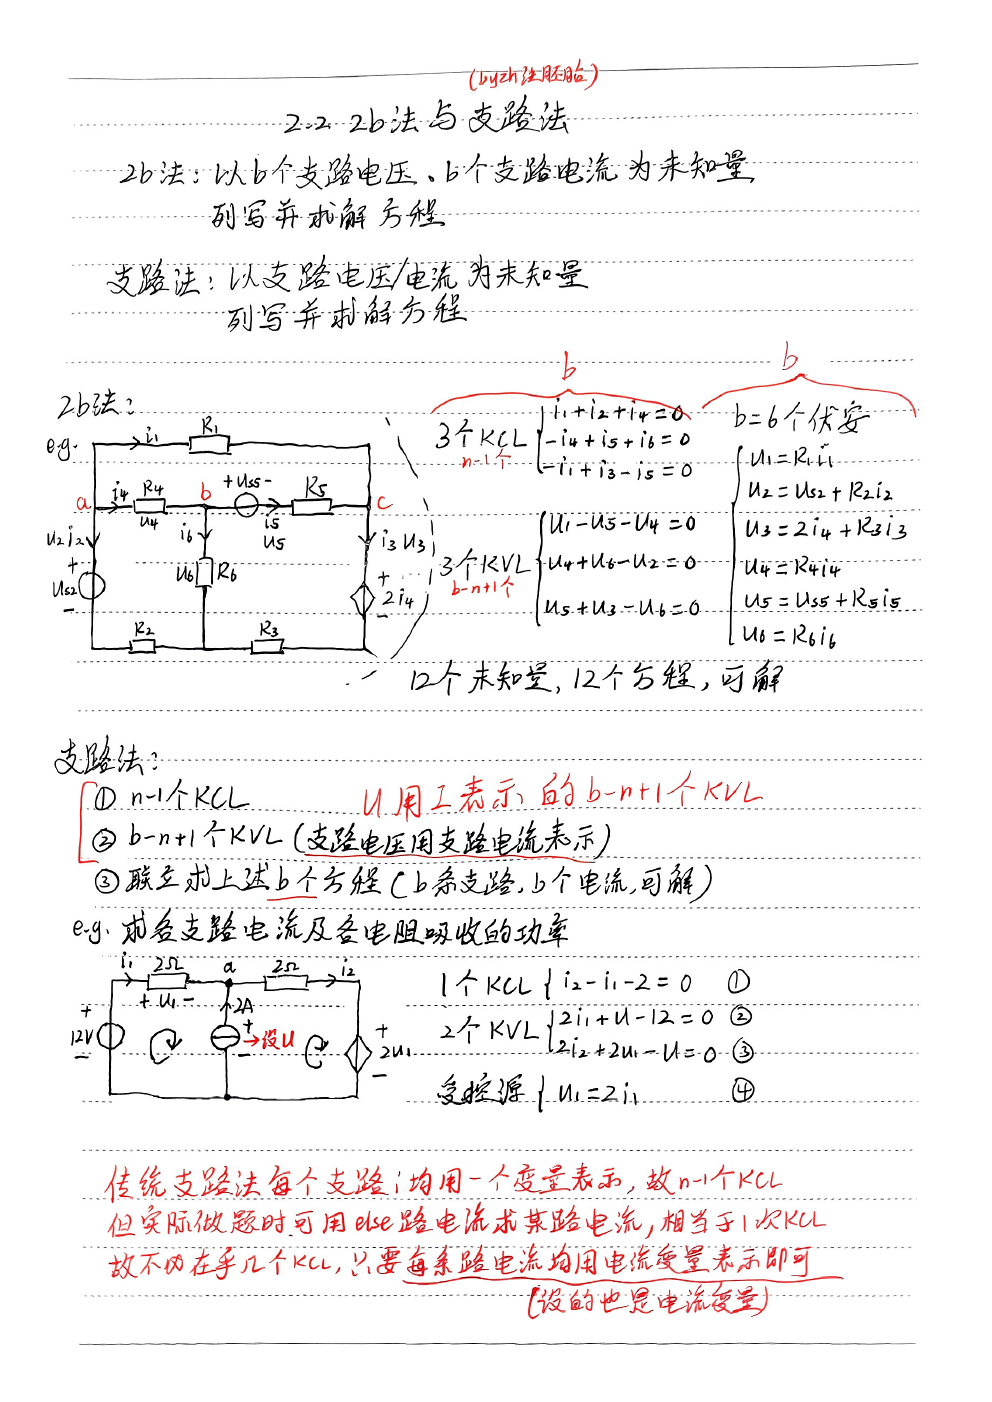 (byzh注胚胎)
2.2 2b法与支路法
2b法：以b个支路电压、b个支路电流为未知量
列写并求解方程
支路法：以支路电压/电流为未知量
列写并求解方程
2b法：
e.g.
i₁ R₁
a i₄ R₄ u₄ b +Us₅- i₅ u₅ R₅ c
u₂ i₂ i₆ i₃ u₃
+ Us₂ - u₆ R₆ + 2i₄ -
R₂ R₃
b
3个KCL
n-1个
i₁+i₂+i₄=0
-i₄+i₅+i₆=0
-i₁+i₃-i₅=0
3个KVL
b-n+1个
u₁-u₅-u₄=0
u₄+u₆-u₂=0
u₅+u₃-u₆=0
b
b=6个伏安
u₁=R₁i₁
u₂=Us₂+R₂i₂
u₃=2i₄+R₃i₃
u₄=R₄i₄
u₅=Us₅+R₅i₅
u₆=R₆i₆
12个未知量,12个方程,可解
支路法：
① n-1个KCL
U用I表示的b-n+1个KVL
② b-n+1个KVL(支路电压用支路电流表示)
③ 联立求上述b个方程(b条支路,b个电流,可解)
e.g. 求各支路电流及各电阻吸收的功率
i₁ 2Ω a 2Ω i₂
+ u₁ -
2A
+ 12V - + - →设U + 2u₁ -
1个KCL { i₂-i₁-2=0 ①
2个KVL { 2i₁+U-12=0 ②
2i₂+2u₁-U=0 ③
受控源 { u₁=2i₁ ④
传统支路法每个支路i均用一个变量表示,故n-1个KCL
但实际做题时可用else路电流求某路电流,相当于1次KCL
故不必在乎几个KCL,只要每条路电流均用电流变量表示即可
(设的也是电流变量)